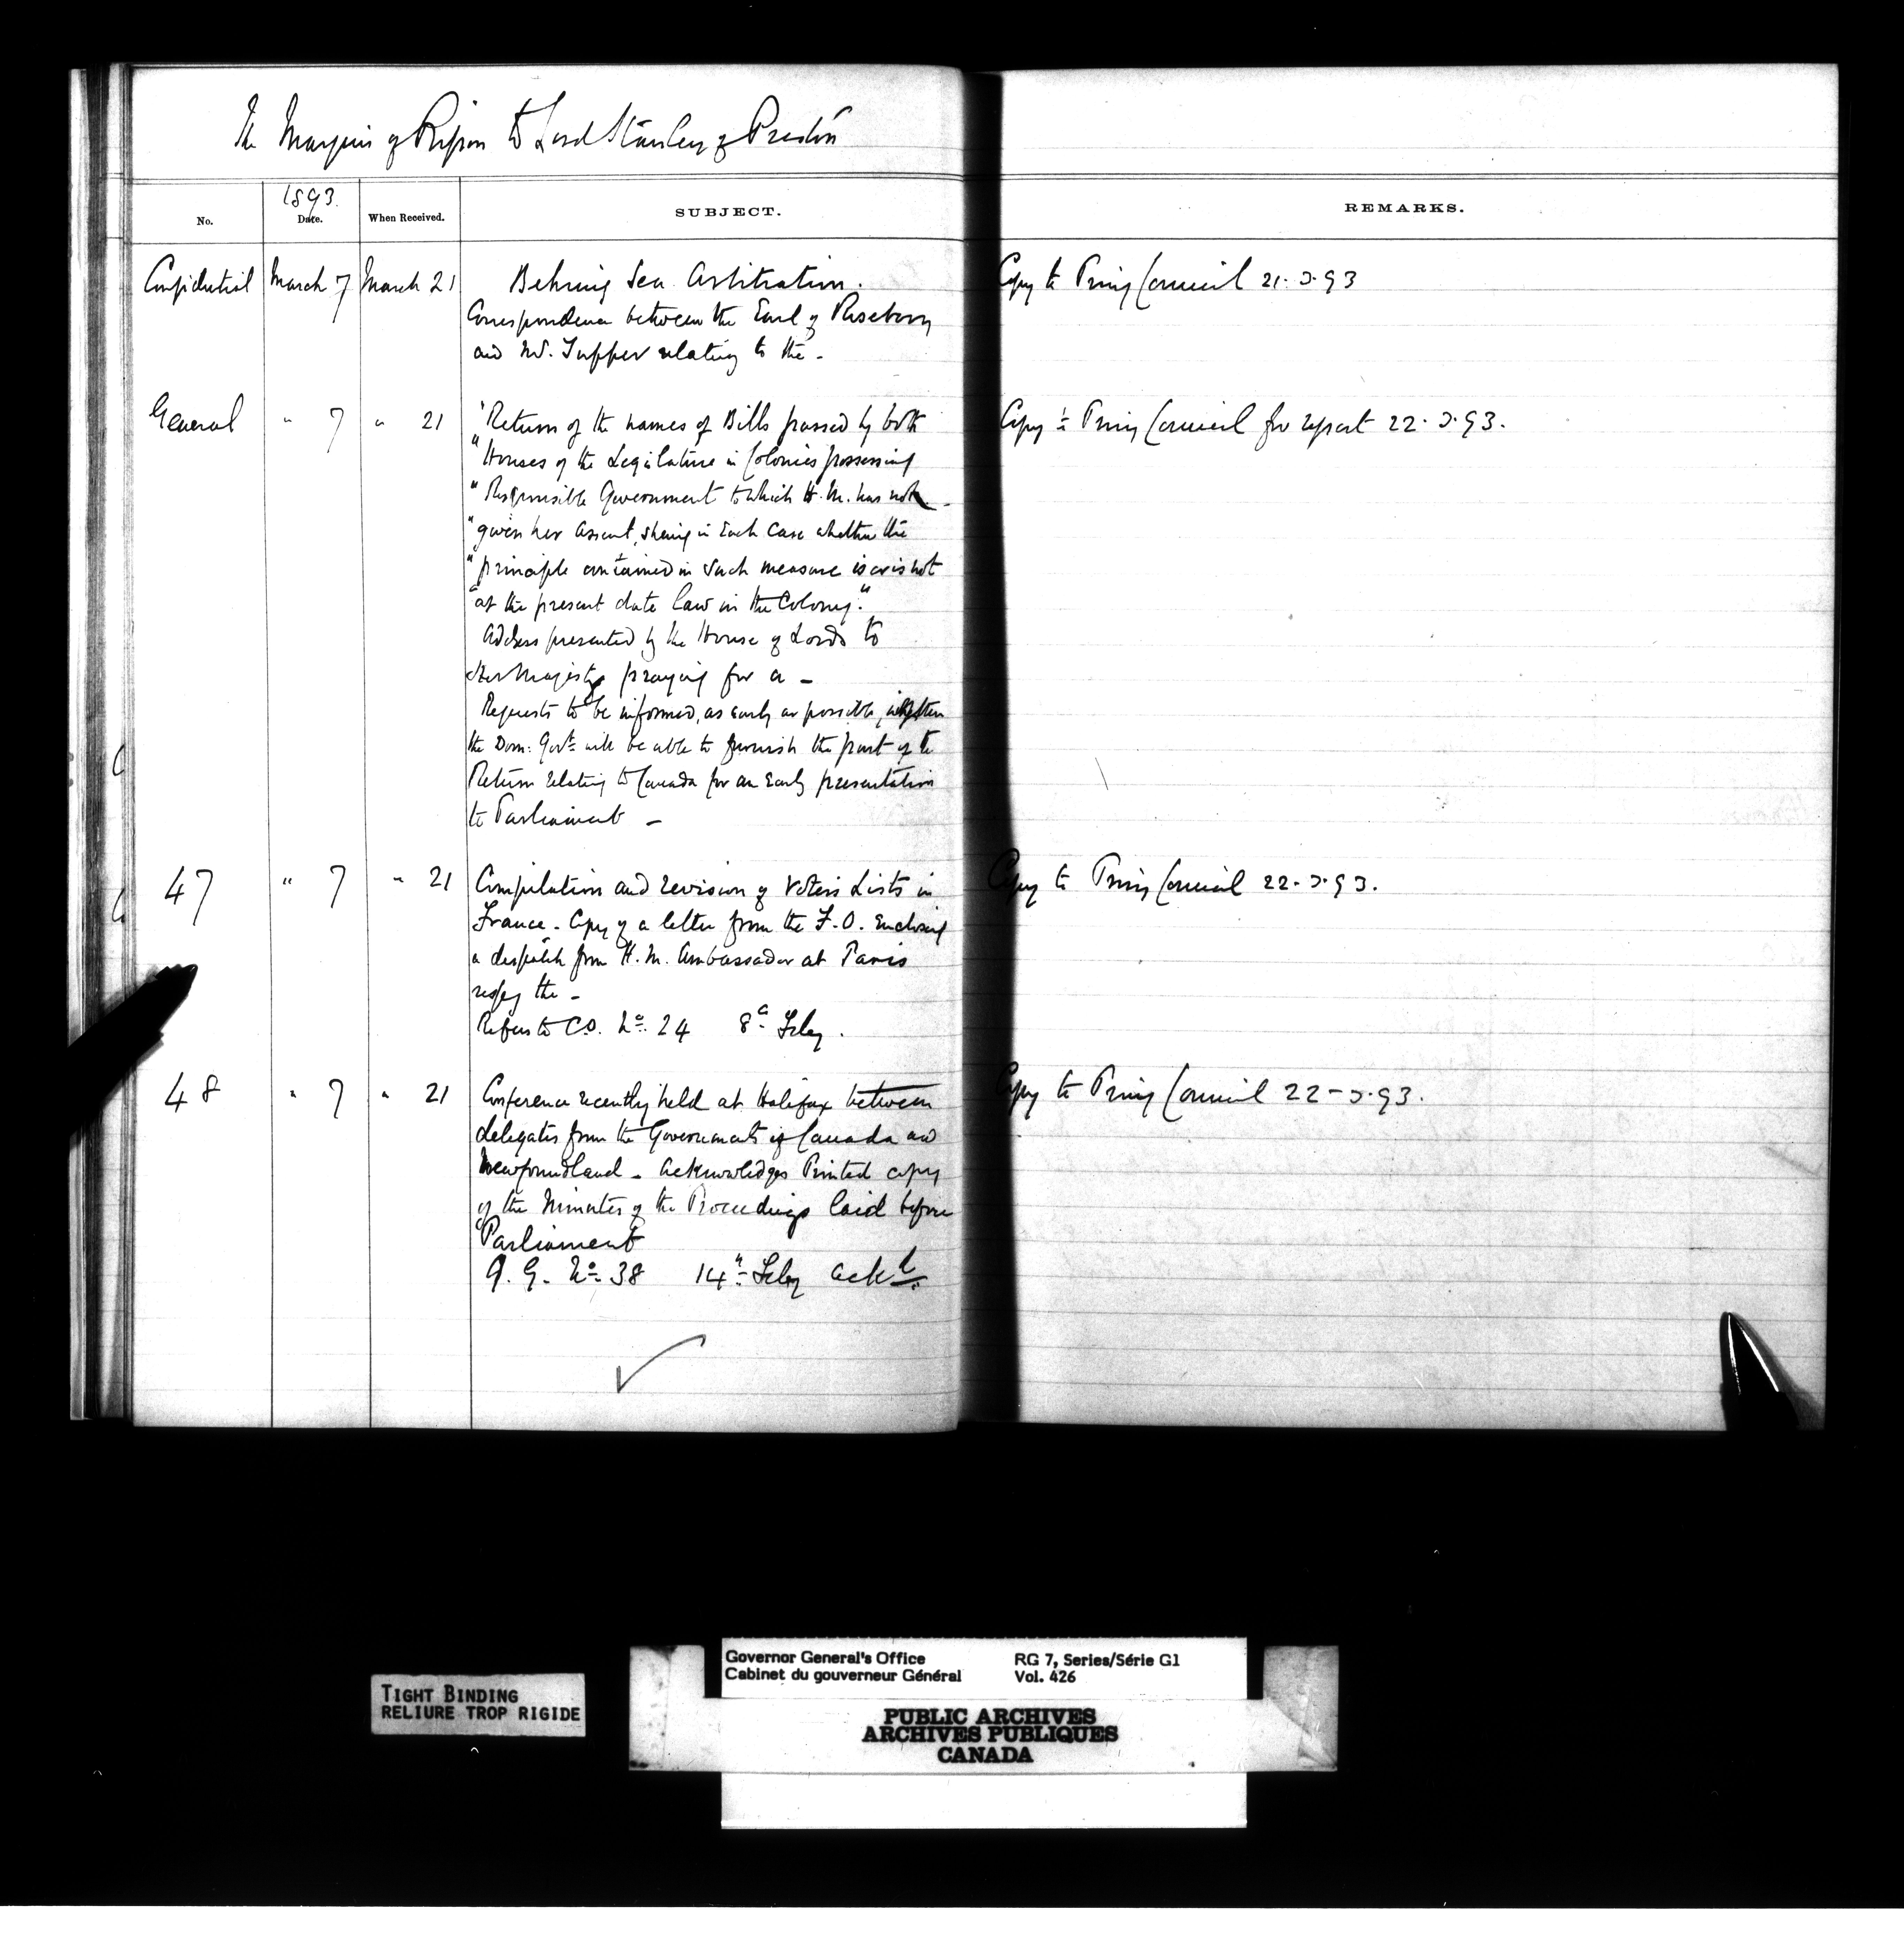 The Marquis of Ripon to Lord Stanley of Preston
No.
1893.
Date.
When Received.
SUBJECT.
REMARKS.
Confidential March 7 March 21 Behring Sea Arbitration. Copy to Privy Council 21.3.93
Correspondence between the Earl of Rosebery
and Mr. Tupper relating to the -
General " 7 " 21 "Return of the names of Bills passed by both Copy to Privy Council for report 22.3.93.
"Houses of the Legislature in Colonies possessing
"Responsible Government to which H.M. has not
"given her assent, shewing in each case whether the
"principle contained in such measure is or is not
"at the present date law in the Colony."
Address presented by the House of Lords to
Her Majesty praying for a -
Requests to be informed, as early as possible, whether
the Dom: Govt. will be able to furnish the part of the
Return relating to Canada for an early presentation
to Parliament -
47 " 7 " 21 Compilation and revision of Voters Lists in Copy to Privy Council 22.3.93.
France - Copy of a letter from the F.O. enclosing
a despatch from H.M. Ambassador at Paris
respg the -
Refers to C.O. No. 24 8th Feby.
48 " 7 " 21 Conference recently held at Halifax between Copy to Privy Council 22-3.93.
delegates from the Governments of Canada and
Newfoundland - Acknowledges Printed copy
of the Minutes of the Proceedings laid before
Parliament
G.G. No. 38 14th Feby ackd.
TIGHT BINDING
RELIURE TROP RIGIDE
Governor General's Office RG 7, Series/Série G1
Cabinet du gouverneur Général Vol. 426
PUBLIC ARCHIVES
ARCHIVES PUBLIQUES
CANADA